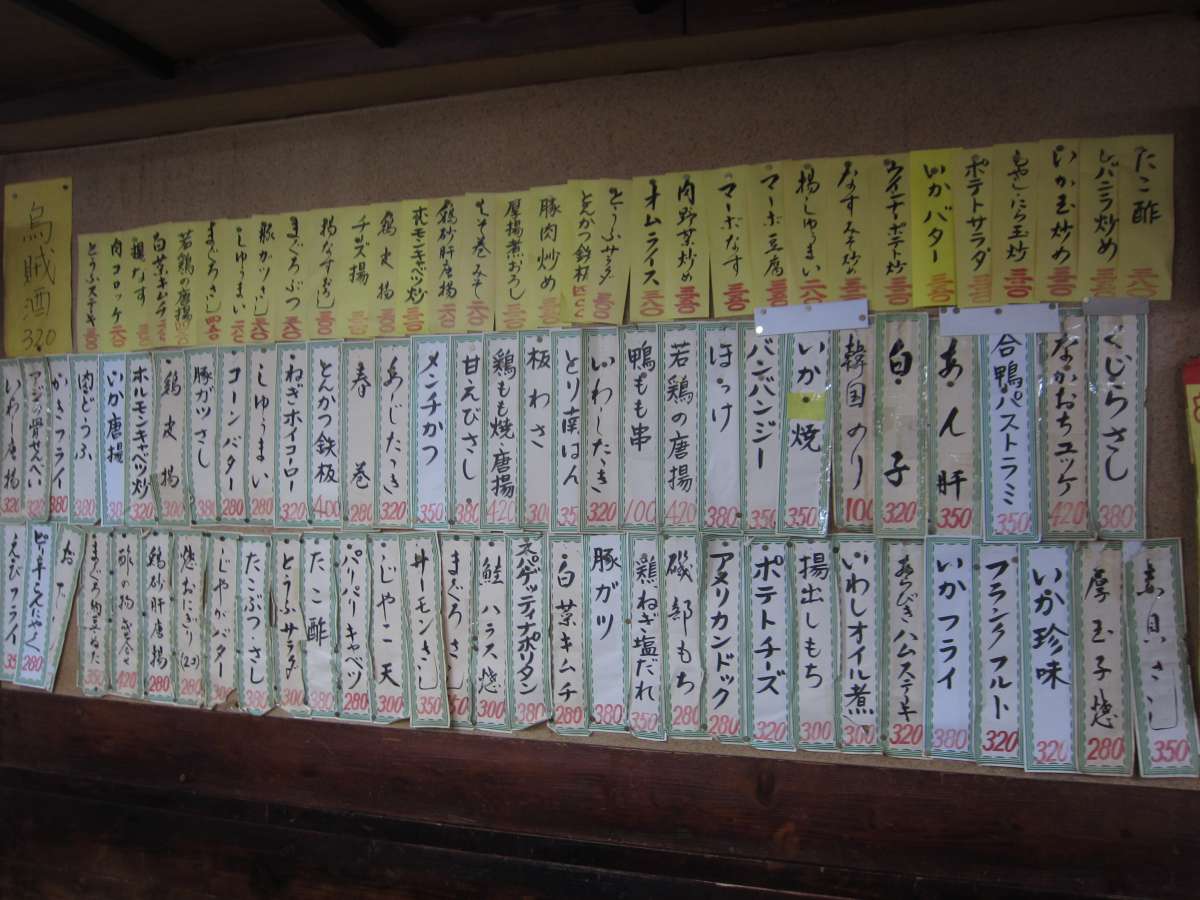 たこ酢
レバニラ炒め
いか玉炒め
もやしにら玉炒
ポテトサラダ
いかバター
ウインナーポテト炒
なすみそ炒め
揚しゅうまい
マーボ豆腐
マーボなす
肉野菜炒め
オムライス
とうふサラダ
とんかつ鉄板
豚肉炒め
厚揚煮おろし
しそ巻みそ
鶏砂肝唐揚
ホルモンキャベツ炒
鶏皮揚
チーズ揚
まぐろぶつ
豚ガツさし
しゅうまい
まぐろさし
若鶏の唐揚
白菜キムチ
肉コロッケ
とうふステーキ
烏賊酒 320
くじらさし 380
なかおちユッケ 420
合鴨パストラミ 350
あん肝 350
白子 320
韓国のり 100
いか焼 350
バンバンジー 350
ほっけ 380
若鶏の唐揚 420
鴨もも串 100
いわしたたき 320
とり南ばん 35
板わさ 300
鶏もも焼唐揚 420
甘えびさし 380
メンチかつ 350
あじたたき 320
春巻 280
とんかつ鉄板 400
ねぎホイコーロー 320
しゅうまい 280
コーンバター 280
豚ガツさし 380
鶏皮揚 300
ホルモンキャベツ炒 320
いか唐揚 380
肉どうふ 380
かきフライ 380
アジの骨せんべい 320
いわし唐揚 320
赤貝さし 350
厚玉子焼 280
いか珍味 320
フランクフルト 320
いかフライ 380
あらびきハムステーキ 320
いわしオイル煮 300
揚出しもち 300
ポテトチーズ 320
アメリカンドック 280
磯部もち 280
鶏ねぎ塩だれ 350
豚ガツ 380
白菜キムチ 280
スパゲッティナポリタン 380
鮭ハラス焼 300
まぐろさし
サーモンさし 350
じゃこ天 300
パリパリキャベツ 280
たこ酢 380
とうふサラダ 300
たこぶつさし 380
じゃがバター 300
焼おにぎり(2コ) 280
鶏砂肝唐揚 280
酢の物盛合せ 420
ピリ辛こんにゃく 280
えびフライ 35